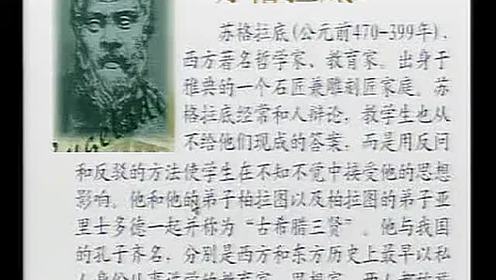 苏格拉底
苏格拉底(公元前470-399年),
西方著名哲学家、教育家。出身于
雅典的一个石匠兼雕刻匠家庭。苏
格拉底经常和人辩论,教学生也从
不给他们现成的答案,而是用反问
和反驳的方法使学生在不知不觉中接受他的思想
影响。他和他的弟子柏拉图以及柏拉图的弟子亚
里士多德一起并称为“古希腊三贤”。他与我国
的孔子齐名,分别是西方和东方历史上最早以私